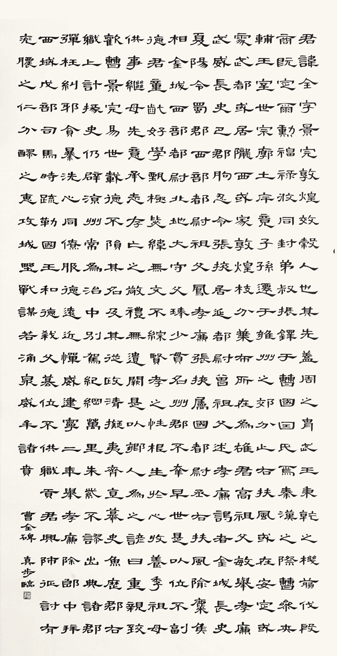 君諱全字景完敦煌效穀人也其先蓋周之胄武王秉乾之機翦伐殷
商既定爾勳福祿攸同封弟叔振鐸于曹國因氏焉秦漢之際曹參夾
輔王室世宗廓土斥竟子孫遷于雍州之郊分止右扶風或在安定或處
武都或居隴西或家敦煌枝分葉布所在為雄君高祖父敏舉孝廉
武威長史巴郡朐忍令張掖居延都尉曾祖父述孝廉謁者金城長史
夏陽令蜀郡西部都尉祖父鳳孝廉張掖屬國都尉丞右扶風隃麋侯
相金城西部都尉北地大守父琫少貫名州郡不幸早世是以位不副
德君童齔好學甄極毖緯無文不綜賢孝之性根生於心收養季祖母
供事繼母先意承志存亡之敬禮無遺闕是以鄉人為之諺曰重親致
歡曹景完易世載德不隕其名及其從政清擬夷齊直慕史魚歷郡右
職上計掾史仍辟涼州常為治中別駕紀綱萬里朱紫不謬出典諸郡
彈枉糾邪貪暴洗心同僚服德遠近憚威建寧二年舉孝廉除郎中拜
西域戊部司馬時疏勒國王和德弒父篡位不供職貢君興師征討有
兗膿之仁分醪之惠攻城野戰謀若涌泉威牟諸賁
曹全碑